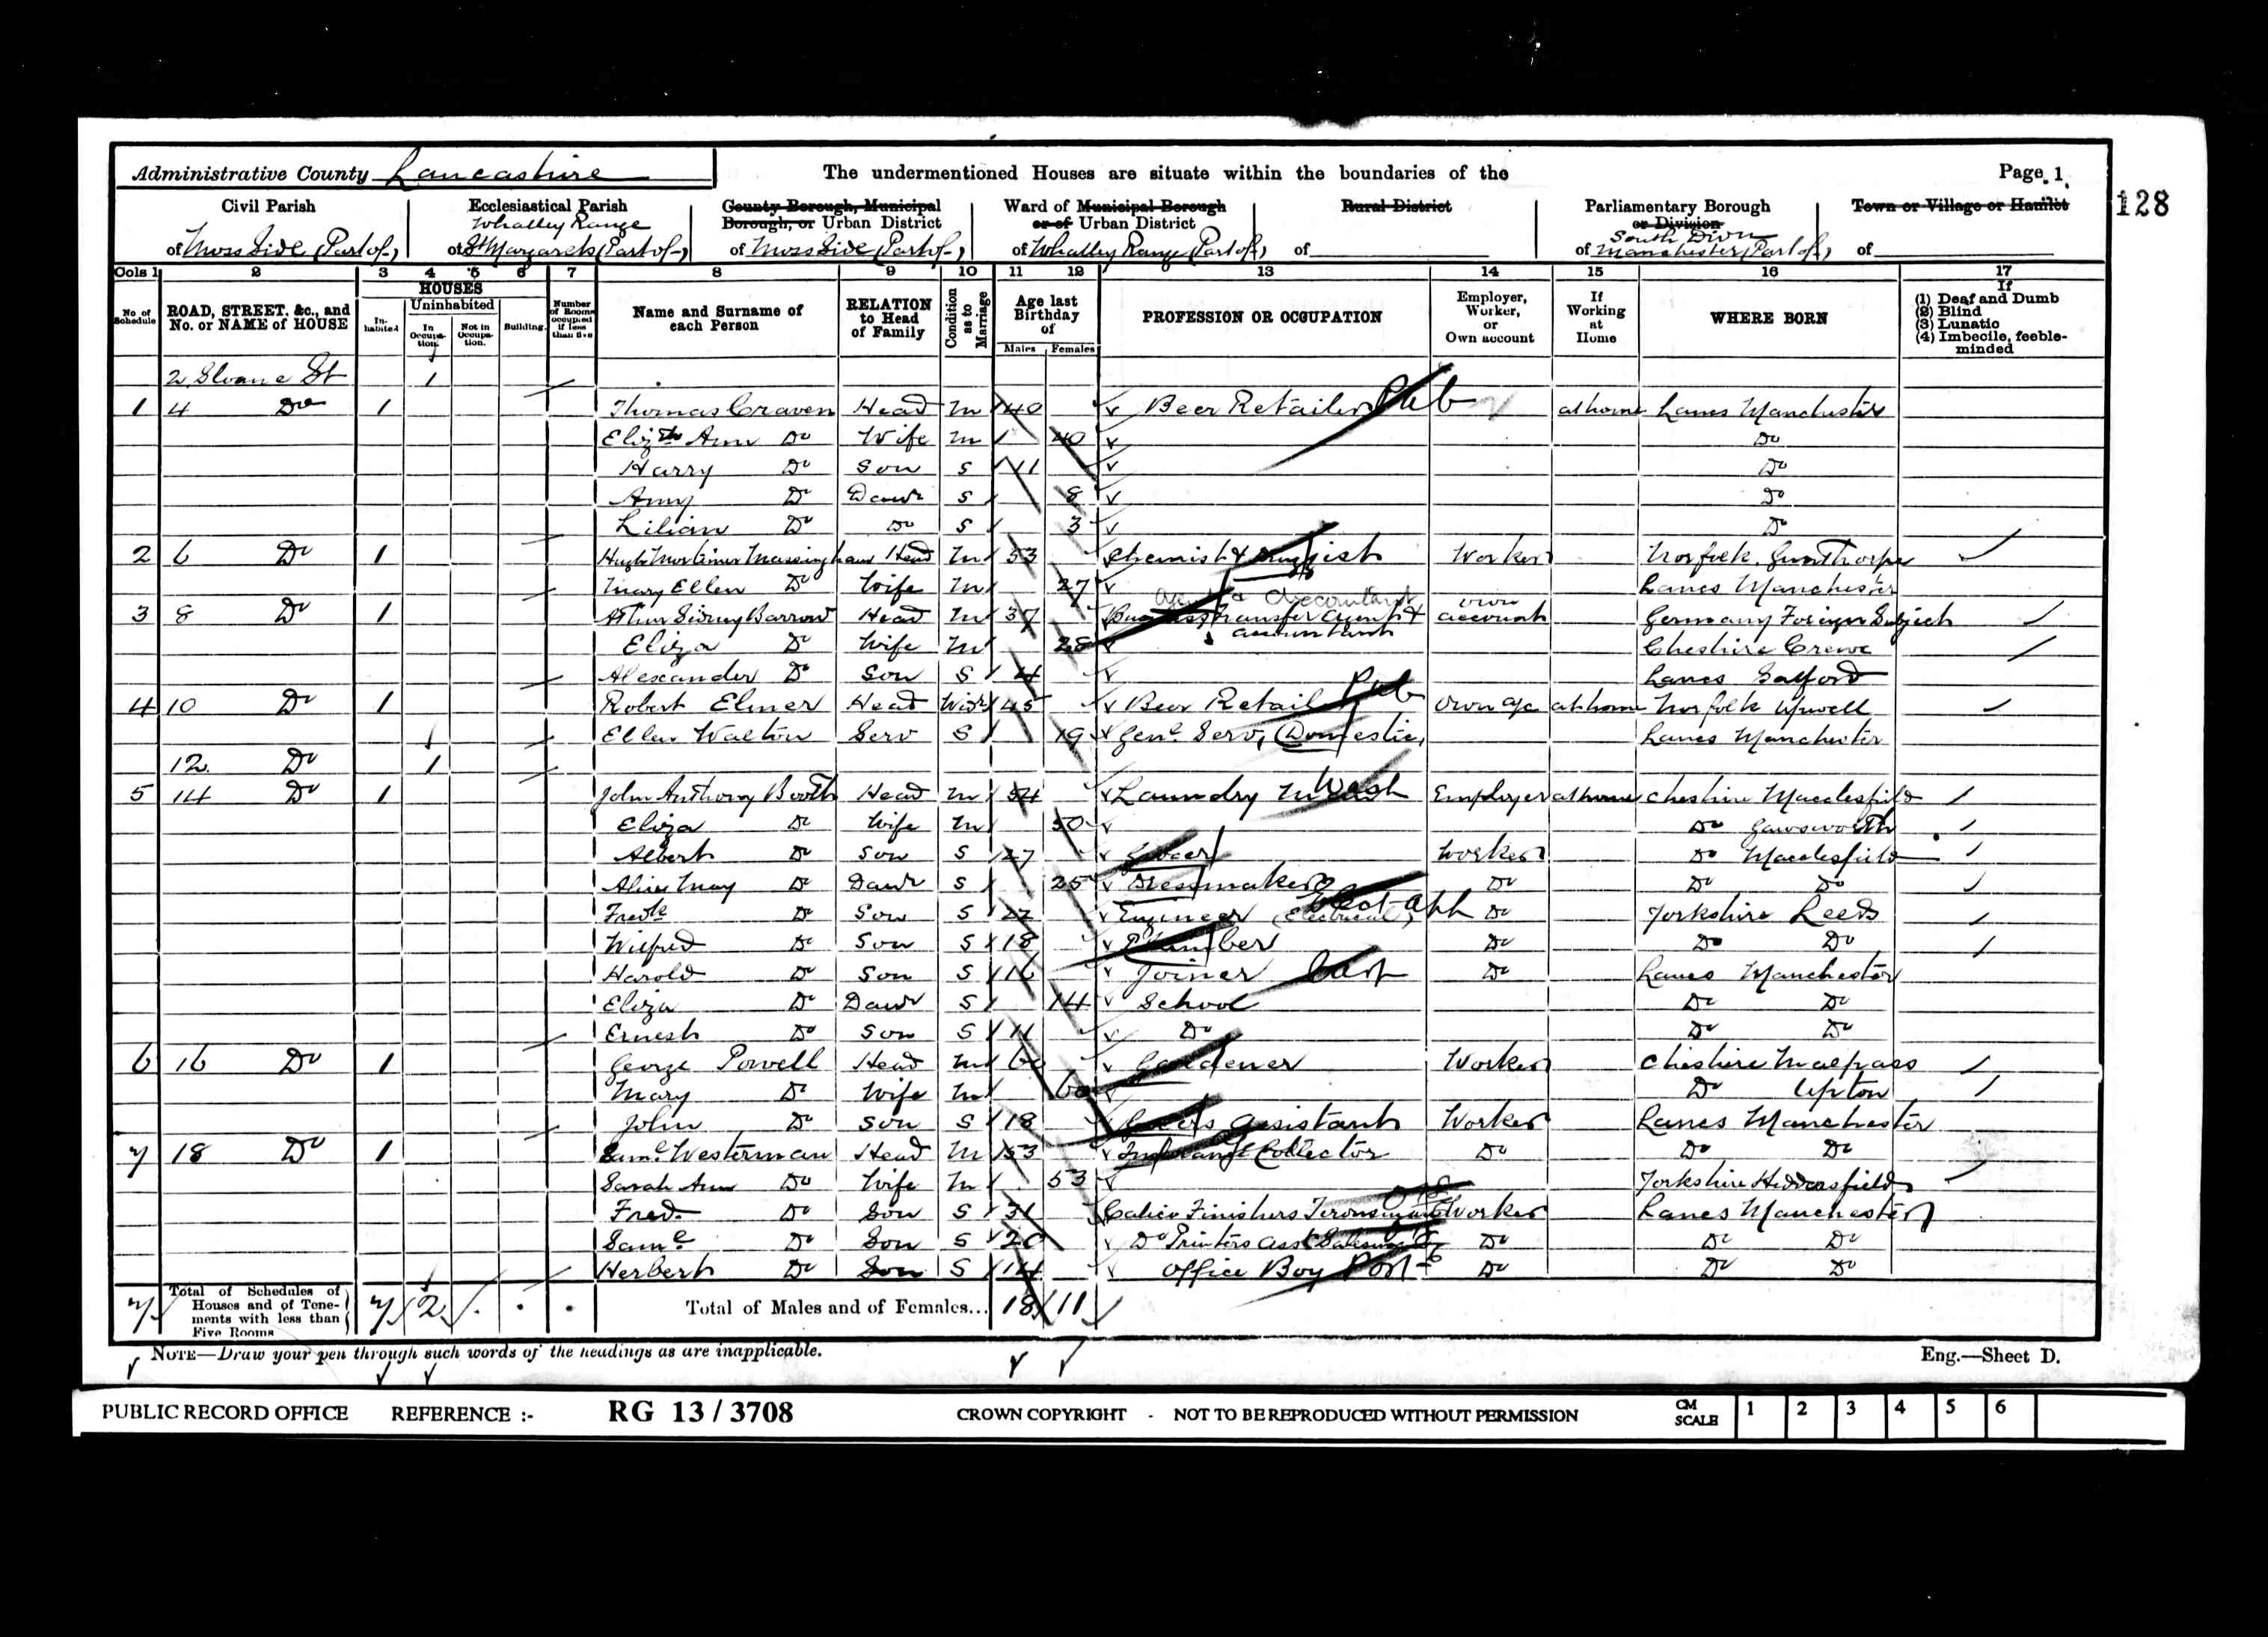 Administrative County Lancashire The undermentioned Houses are situate within the boundaries of the Page 1
128
Civil Parish Ecclesiastical Parish County Borough, Municipal Borough, or Urban District Ward of Municipal Borough or of Urban District Rural District Parliamentary Borough or Division Town or Village or Hamlet
of Moss Side (Part of) of Whalley Range St Margarets (Part of) of Moss Side (Part of) of Whalley Range (Part of) of of South Divn Manchester (Part of) of
Cols 1 2 3 4 5 6 7 8 9 10 11 12 13 14 15 16 17
No of Schedule ROAD, STREET, &c., and No. or NAME of HOUSE HOUSES Inhabited Uninhabited In Occupation. Not in Occupation. Building. Number of Rooms occupied if less than five Name and Surname of each Person RELATION to Head of Family Condition as to Marriage Age last Birthday of Males Females PROFESSION OR OCCUPATION Employer, Worker, or Own account If Working at Home WHERE BORN If (1) Deaf and Dumb (2) Blind (3) Lunatic (4) Imbecile, feeble-minded
2 Sloane St 1
1 4 Do 1 Thomas Craven Head M 40 Beer Retailer Pub at home Lancs Manchester
Elizth Ann Do Wife M 40 Do
Harry Do Son S 11 Do
Amy Do Daur S 8 Do
Lilian Do Do S 3 Do
2 6 Do 1 Hugh Mortimer Massingham Head M 53 Chemist & Druggist Worker Norfolk Gunthorpe
Mary Ellen Do Wife M 27 Lancs Manchester
3 8 Do 1 Arthur Sidney Barrow Head M 37 Business Transfer Agent & accountant own account Germany Foreign Subject
Eliza Do Wife M 28 Cheshire Crewe
Alexander Do Son S 4 Lancs Salford
4 10 Do 1 Robert Elmer Head Widr 45 Beer Retailer Pub own a/c at home Norfolk Upwell
Ellen Walton Serv S 19 Genl Serv, (Domestic) Lancs Manchester
12 Do 1
5 14 Do 1 John Anthony Booth Head M 54 Laundry Wash Employer at home Cheshire Macclesfield
Eliza Do Wife M 50 Do Gawsworth
Albert Do Son S 27 Grocer Worker Do Macclesfield
Alice May Do Daur S 25 Dressmaker Do Do Do
Fredk Do Son S 22 Engineer (Electrical) Do Yorkshire Leeds
Wilfred Do Son S 18 Plumber Do Do Do
Harold Do Son S 16 Joiner Do Lancs Manchester
Eliza Do Daur S 14 School Do Do
Ernest Do Son S 11 Do Do Do
6 16 Do 1 George Powell Head M 60 Gardener Worker Cheshire Malpass
Mary Do Wife M 60 Do Upton
John Do Son S 18 Assistant Worker Lancs Manchester
7 18 Do 1 Saml Westerman Head M 53 Insurance Collector Do Do Do
Sarah Ann Do Wife M 53 Yorkshire Huddersfield
Fred. Do Son S 31 Calico Finishers Worker Lancs Manchester
Saml Do Son S 20 Do Printers asst Salesman Do Do Do
Herbert Do Son S 14 Office Boy Do Do Do
7 Total of Schedules of Houses and of Tenements with less than Five Rooms 7 2 Total of Males and of Females... 18 11
NOTE—Draw your pen through such words of the headings as are inapplicable. Eng.—Sheet D.
PUBLIC RECORD OFFICE REFERENCE :- RG 13 / 3708 CROWN COPYRIGHT - NOT TO BE REPRODUCED WITHOUT PERMISSION CM SCALE 1 2 3 4 5 6